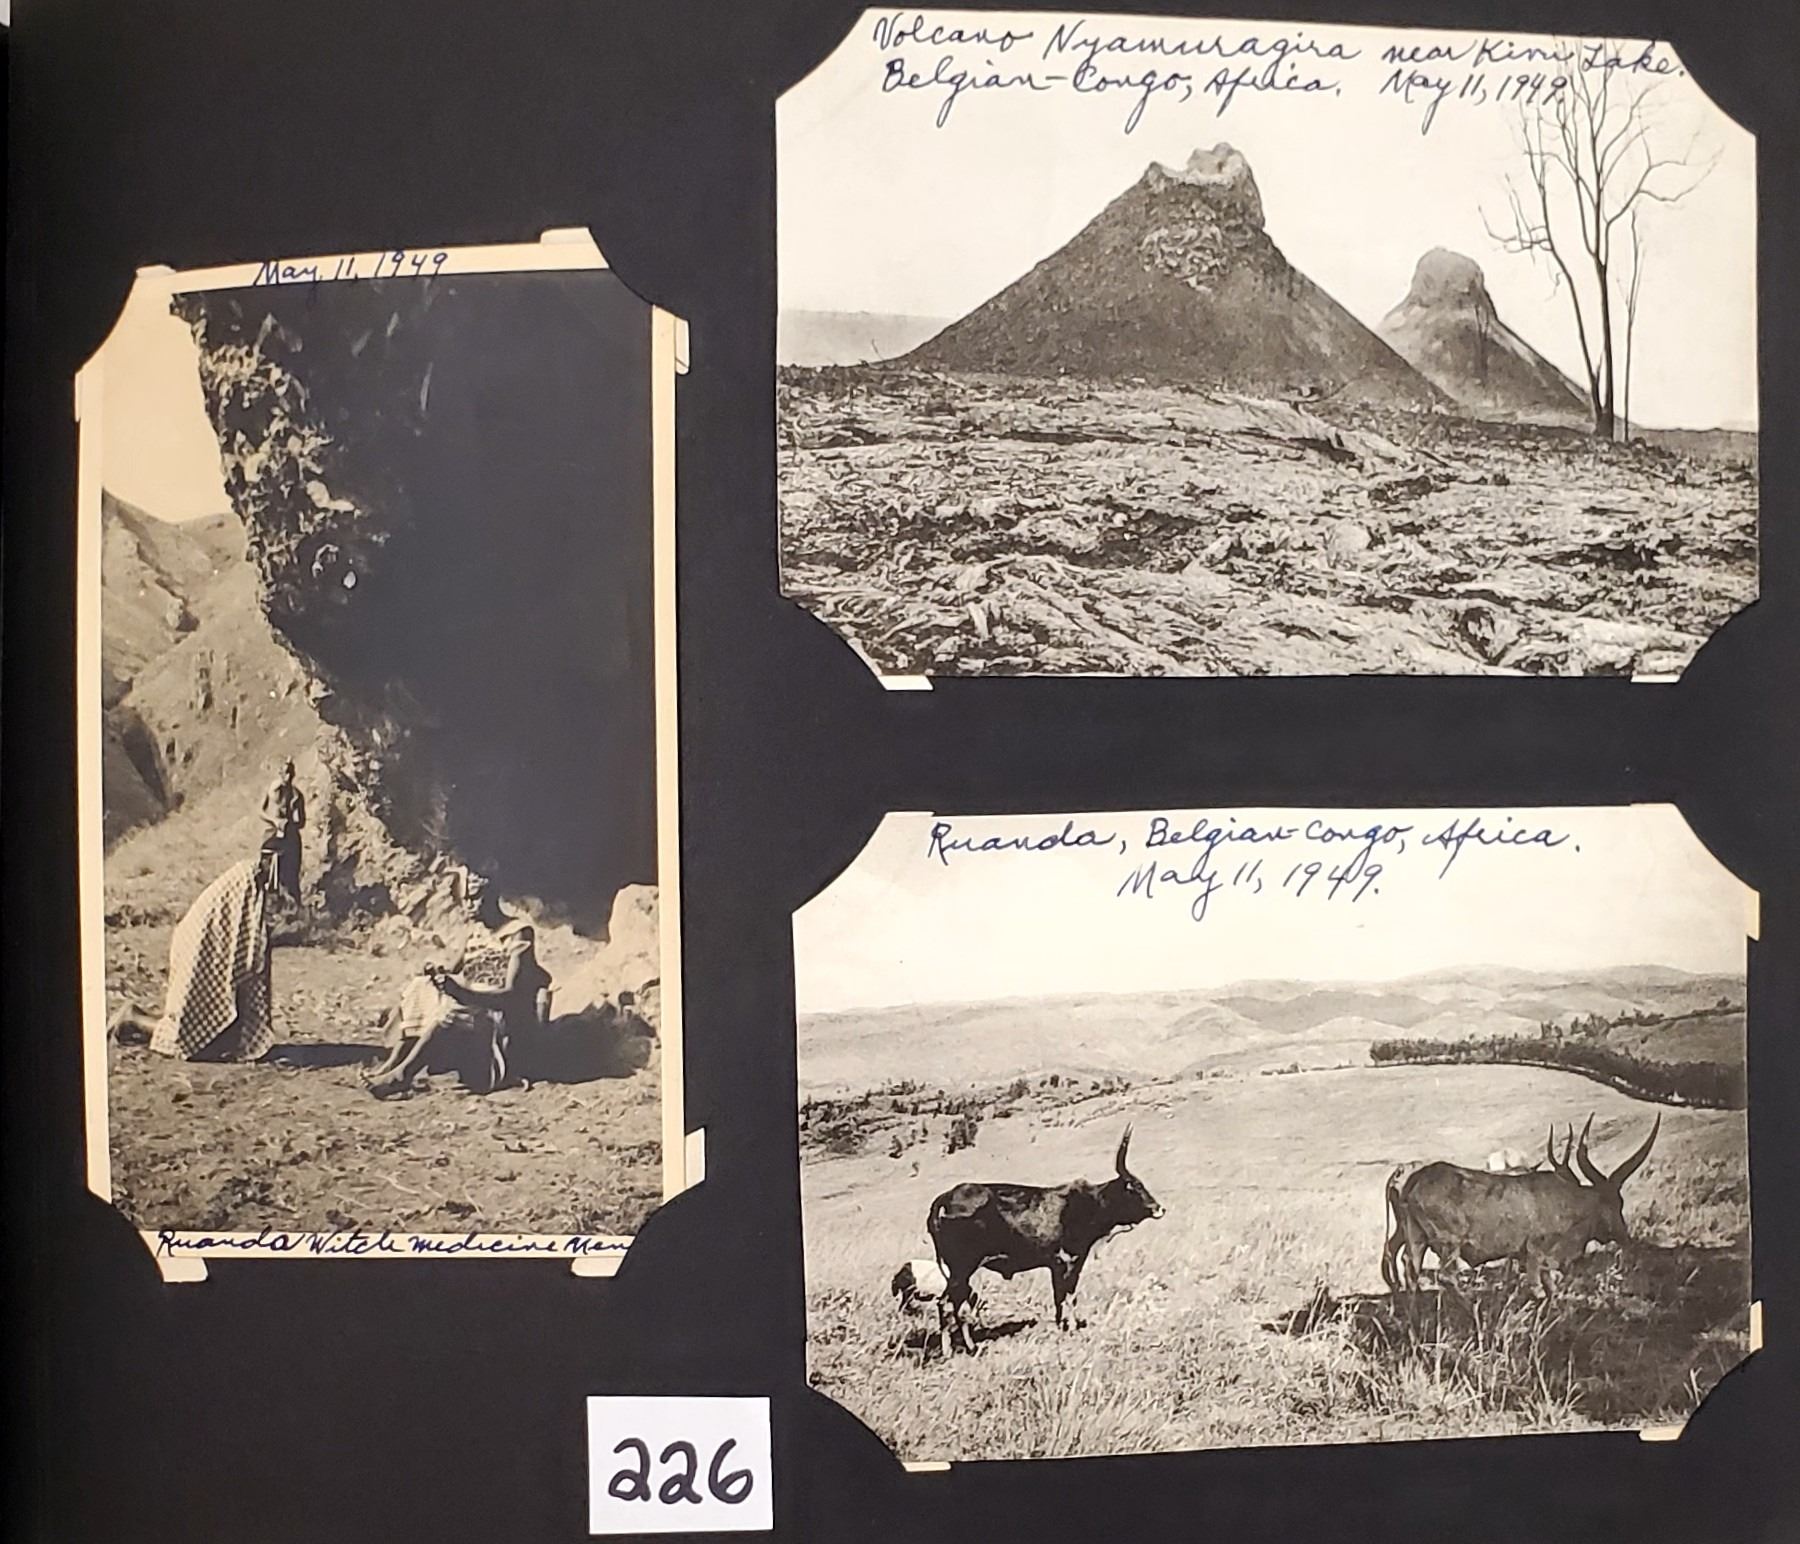 May 11, 1949
Ruanda Witch medicine Men
Volcano Nyamuragira near Kivu Lake.
Belgian-Congo, Africa. May 11, 1949.
Ruanda, Belgian-Congo, Africa.
May 11, 1949.
226